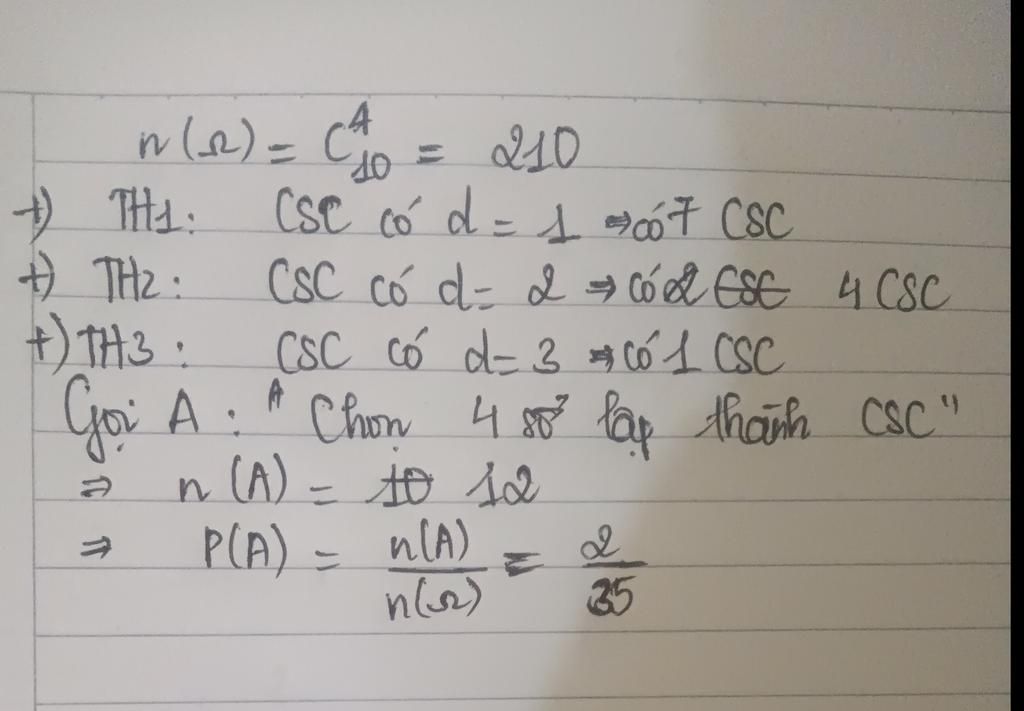 n(Ω) = C⁴₁₀ = 210
+) TH1: CSC có d = 1 ⇒ có 7 CSC
+) TH2: CSC có d = 2 ⇒ có 2 CSC 4 CSC
+) TH3: CSC có d = 3 ⇒ có 1 CSC
Gọi A: "Chọn 4 số lập thành CSC"
⇒ n(A) = 10 12
⇒ P(A) = n(A)/n(Ω) = 2/35